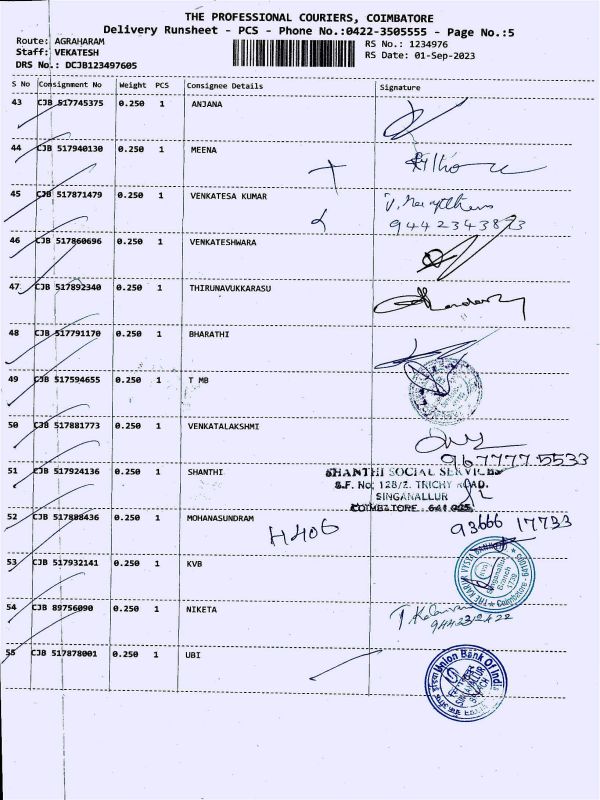 THE PROFESSIONAL COURIERS, COIMBATORE
Delivery Runsheet - PCS - Phone No.:0422-3505555 - Page No.:5
Route: AGRAHARAM
RS No.: 1234976
Staff: VEKATESH
RS Date: 01-Sep-2023
DRS No.: DCJB123497605
S No Consignment No Weight PCS Consignee Details Signature
43 CJB 517745375 0.250 1 ANJANA
44 CJB 517940130 0.250 1 MEENA
45 CJB 517871479 0.250 1 VENKATESA KUMAR
9442343873
46 CJB 517860696 0.250 1 VENKATESHWARA
47 CJB 517892340 0.250 1 THIRUNAVUKKARASU
48 CJB 517791170 0.250 1 BHARATHI
49 CJB 517594655 0.250 1 T MB
50 CJB 517881773 0.250 1 VENKATALAKSHMI
9677775533
51 CJB 517924136 0.250 1 SHANTHI
SHANTHI SOCIAL SERVICES
S.F. No. 128/2. TRICHY ROAD.
SINGANALLUR
COIMBATORE - 641 005.
52 CJB 517888436 0.250 1 MOHANASUNDRAM
H406
93666 17733
53 CJB 517932141 0.250 1 KVB
THE KARUR VYSYA BANK
Singanallur
Branch
1720
Coimbatore
54 CJB 89756090 0.250 1 NIKETA
55 CJB 517878001 0.250 1 UBI
Union Bank Of India
SINGANALLUR
BRANCH